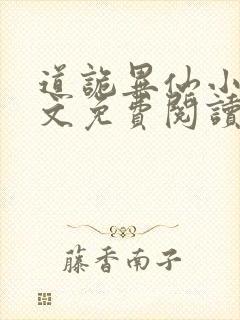 道詭異仙小
文免費閱讀
藤香南子